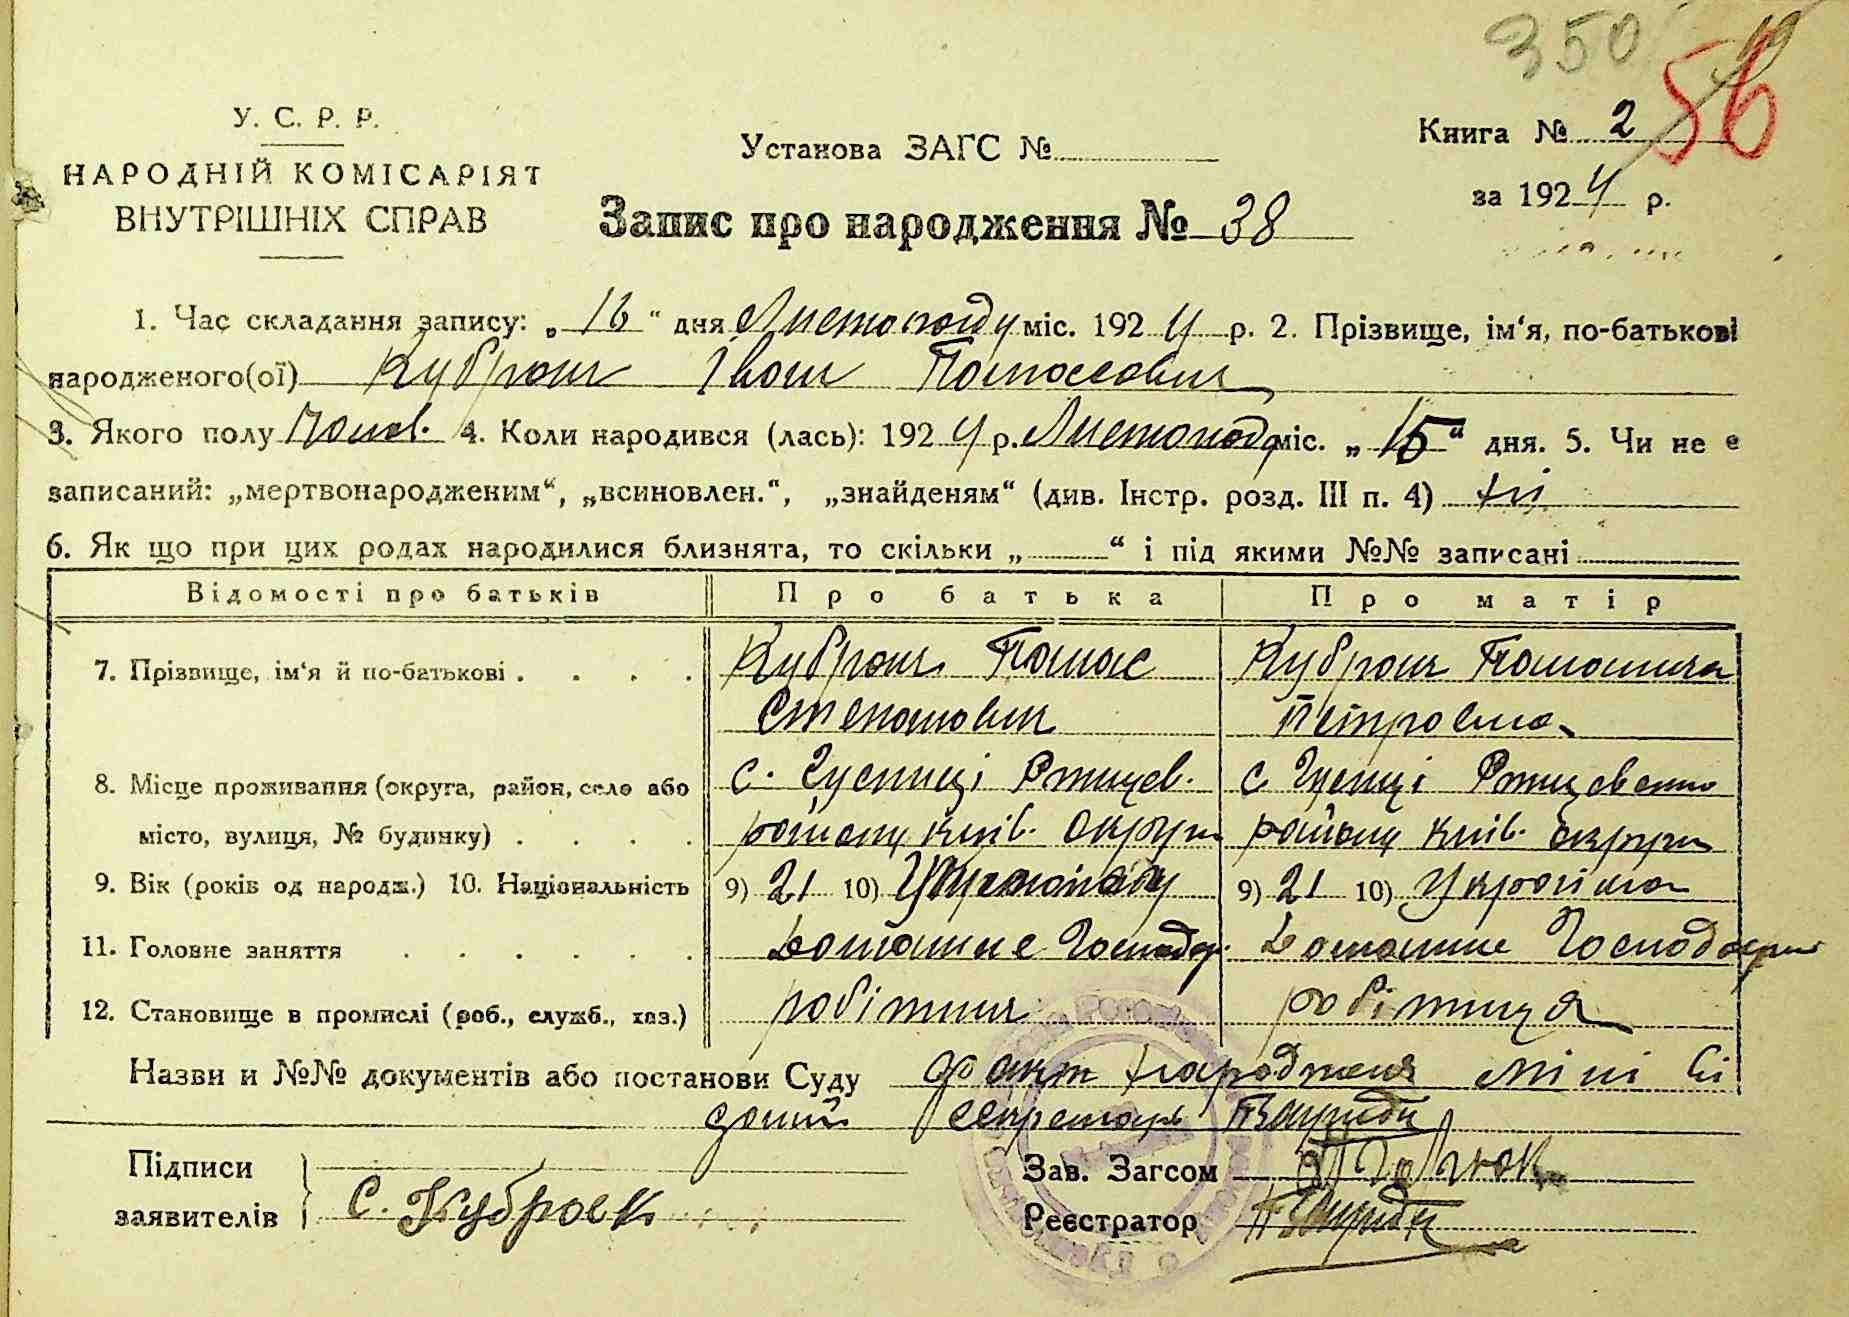 350
56
У. С. Р. Р.
НАРОДНІЙ КОМІСАРІЯТ
ВНУТРІШНІХ СПРАВ
Установа ЗАГС №
Книга № 2
за 1924 р.
Запис про народження № 38
1. Час складання запису: „16“ дня Листопаду міс. 1924 р. 2. Прізвище, ім‘я, по-батькові
народженого(ої) Кубрак Іван Панасович
3. Якого полу Чолов. 4. Коли народився (лась): 1924 р. Листопада міс. „15“ дня. 5. Чи не є
записаний: „мертвонародженим“, „всиновлен.“, „знайденям“ (див. Інстр. розд. III п. 4) ні
6. Як що при цих родах народилися близнята, то скільки „ “ і під якими №№ записані
Відомості про батьків Про батька Про матір
7. Прізвище, ім‘я й по-батькові Кубрак Панас Кубрак
Степанович Петровна
8. Місце проживання (округа, район, село або с. Гусениці Ржищев. с Ржищевсько
місто, вулиця, № будинку) району київ. округи району київ. округи
9. Вік (років од народж.) 10. Національність 9) 21 10) 9) 21 10) Українка
11. Головне заняття Домашнє Господар. Домашнє
12. Становище в промислі (роб., служб., хаз.) робітник робітниця
Назви и №№ документів або постанови Суду факт народженя мні
секретарь
Підписи
заявителів С. Кубрак
Зав. Загсом
Реєстратор